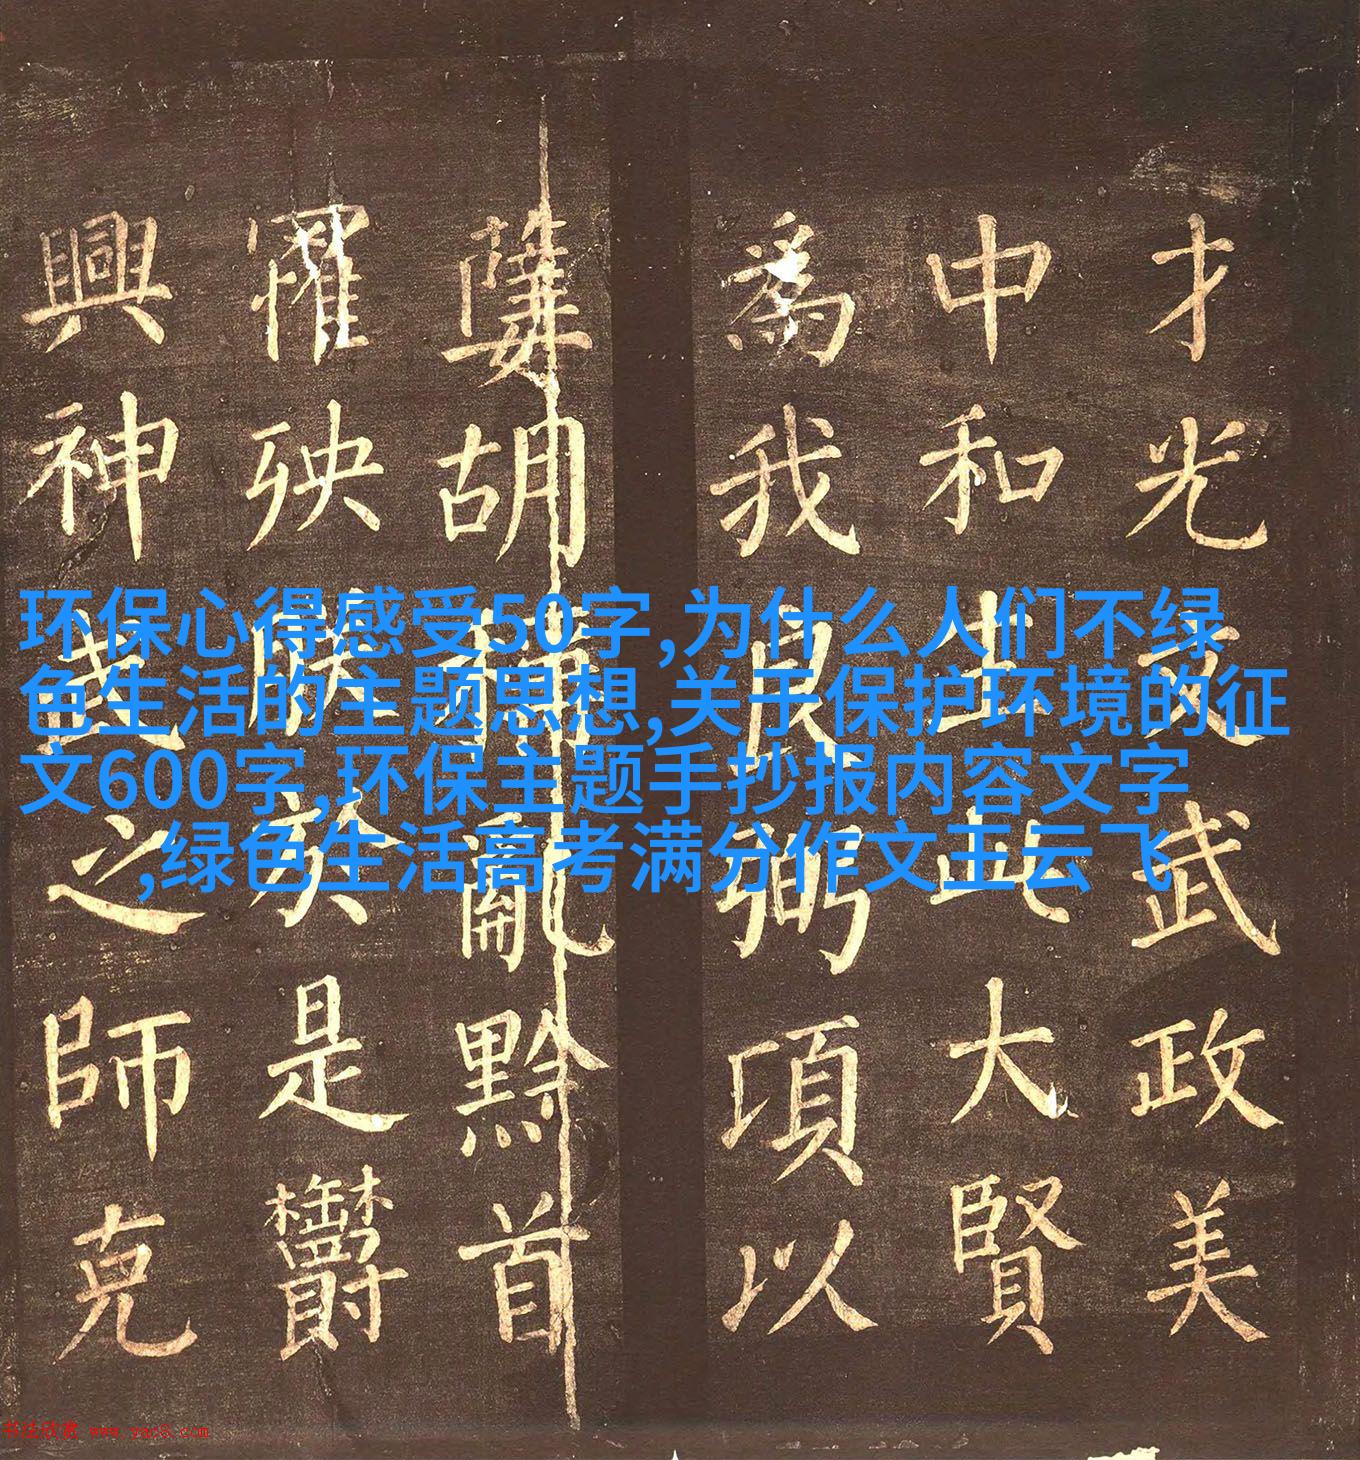 环保心得感受50字,为什么人们不绿
色生活的主题思想,关于保护环境的征
文600字,环保主题手抄报内容文字
,绿色生活高考满分作文王云飞
才光文武政美
中和生此大賢
為我良弼項以
胡亂黔首
罹殃於是欝
興神武之師克
书法欣赏 www.yac8.com